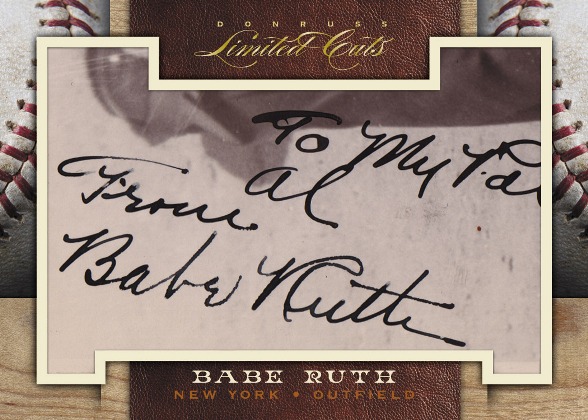 DONRUSS
Limited Cuts
To My Pal
Al
From
Babe Ruth
BABE RUTH
NEW YORK • OUTFIELD